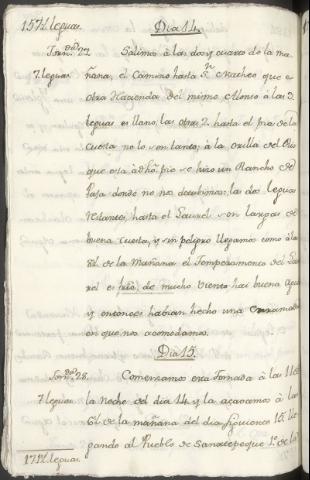 157½ leguas.
Dia 14.
Jornᵈᵃ 27. Salimos à las dos y cuarto de la ma-
7. leguas ñana, el Camino hasta Sⁿ Macheo que es
otra Hacienda del mismo Alonso à las 3.
leguas es llano, las otras 2. hasta el pie de la
cuesta no lo son tanto, à la orilla del Rio
que està à dhõ pie se hizo un Rancho de
Paja donde no nos detubimos: las dos leguas
restantes, hasta el Laurel son largas de
buena cuesta, y sin peligro llegamos como à las
de la Mañana el Temperamento del Lau-
rel es frio, de mucho viento hai buena Agua
y entonces habian hecho una Enrramada
en que nos acomodamos.
Dia 15.
Jornᵈᵃ 28. Comenzamos esta Jornada à las 11½ de
7 leguas la noche del dia 14 y la acavamos à las
6½ de la mañana del dia siguiente 15. lle-
gando al Pueblo de Sanatepeque 1º de la
171½ leguas.